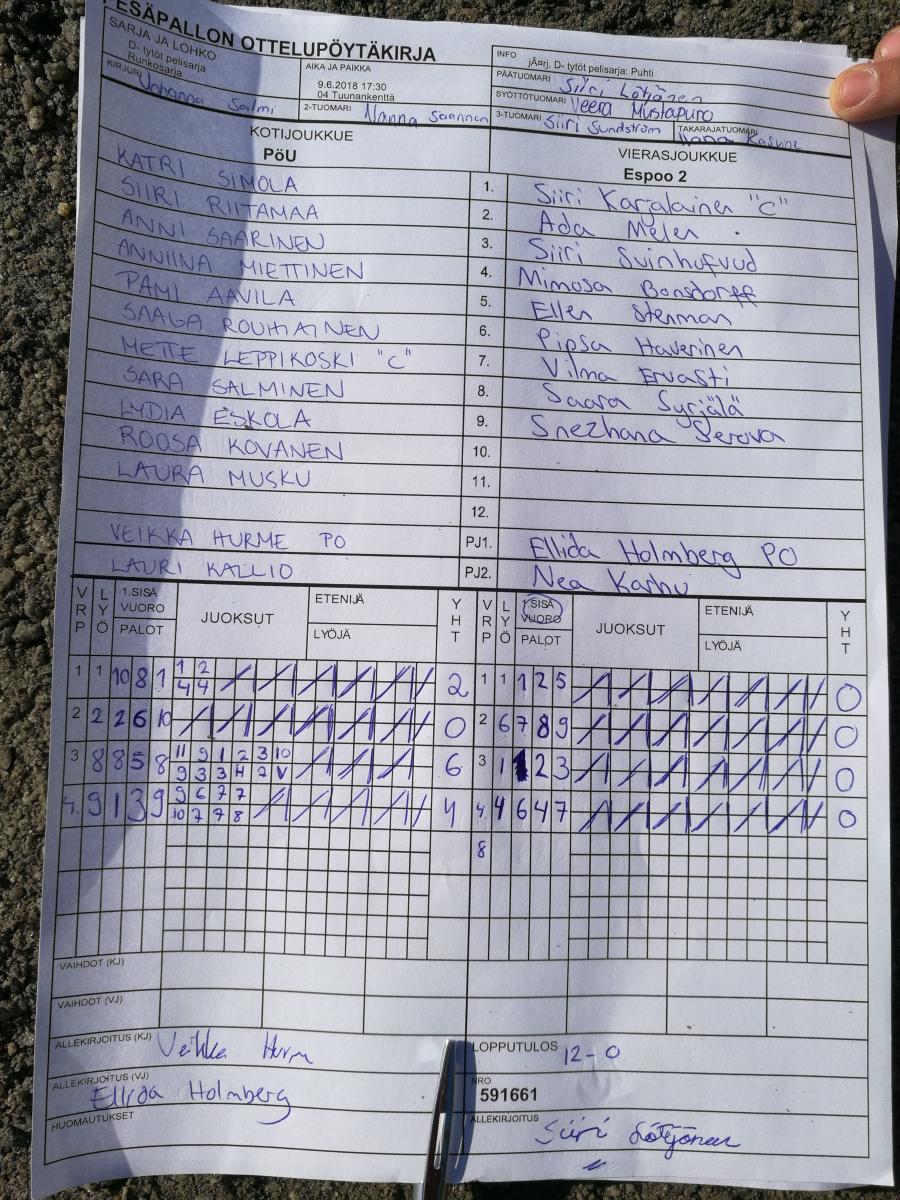 PESÄPALLON OTTELUPÖYTÄKIRJA
SARJA JA LOHKO
D- tytöt pelisarja
Runkosarja
AIKA JA PAIKKA
9.6.2018 17:30
04 Tuunankenttä
INFO
jÄ¤rj. D- tytöt pelisarja: Puhti
KIRJURI Johanna Salmi
2-TUOMARI Nanna Saannen
PÄÄTUOMARI Siiri Lötjönen
SYÖTTÖTUOMARI Veera Mustapuro
3-TUOMARI Siiri Sundström
TAKARAJATUOMARI
KOTIJOUKKUE
PöU
VIERASJOUKKUE
Espoo 2
KATRI SIMOLA 1. Siiri Karjalainen "C"
SIIRI RIITAMAA 2. Ada Meler
ANNI SAARINEN 3. Siiri Svinhufvud
ANNIINA MIETTINEN 4. Mimosa Bonsdorff
PAMI AAVILA 5. Ellen Stenman
SAAGA ROUHIAINEN 6. Pipsa Haverinen
METTE LEPPIKOSKI "C" 7. Vilma Ervasti
SARA SALMINEN 8. Saara Syrjälä
LYDIA ESKOLA 9. Snezhana Serova
ROOSA KOVANEN 10.
LAURA MUSKU 11.
12.
VEIKKA HURME PO PJ1. Ellida Holmberg PO
LAURI KALLIO PJ2. Nea Karhu
VRP LYÖ 1.SISÄ VUORO PALOT JUOKSUT ETENIJÄ LYÖJÄ YHT VRP LYÖ 1.SISÄ VUORO PALOT JUOKSUT ETENIJÄ LYÖJÄ YHT
1 1 10 8 1 1 2 2 1 1 1 2 5 0
4 4
2 2 2 6 10 0 2 6 7 8 9 0
3 8 8 5 8 11 9 1 2 3 10 6 3 1 1 2 3 0
9 3 3 4 7 V
4. 9 1 3 9 9 6 7 7 4 4. 4 6 4 7 0
10 7 7 8
8
VAIHDOT (KJ)
VAIHDOT (VJ)
ALLEKIRJOITUS (KJ) Veikka Hurm
LOPPUTULOS 12-0
ALLEKIRJOITUS (VJ) Ellida Holmberg
NRO
591661
HUOMAUTUKSET
ALLEKIRJOITUS Siiri Lötjönen